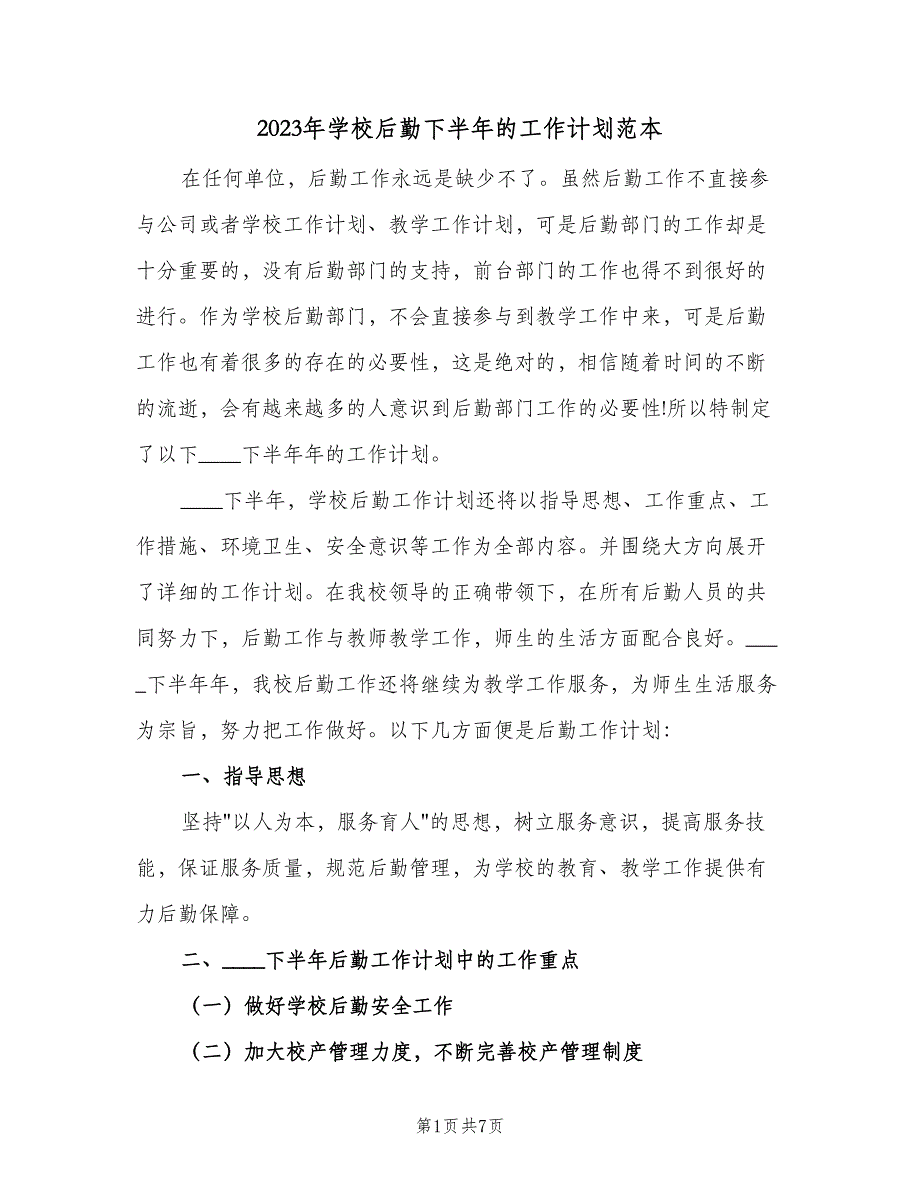 2023年学校后勤下半年的工作计划范本
在任何单位，后勤工作永远是缺少不了。虽然后勤工作不直接参
与公司或者学校工作计划、教学工作计划，可是后勤部门的工作却是
十分重要的，没有后勤部门的支持，前台部门的工作也得不到很好的
进行。作为学校后勤部门，不会直接参与到教学工作中来，可是后勤
工作也有着很多的存在的必要性，这是绝对的，相信随着时间的不断
的流逝，会有越来越多的人意识到后勤部门工作的必要性!所以特制定
了以下____下半年年的工作计划。
____下半年，学校后勤工作计划还将以指导思想、工作重点、工
作措施、环境卫生、安全意识等工作为全部内容。并围绕大方向展开
了详细的工作计划。在我校领导的正确带领下，在所有后勤人员的共
同努力下，后勤工作与教师教学工作，师生的生活方面配合良好。___
_下半年年，我校后勤工作还将继续为教学工作服务，为师生生活服务
为宗旨，努力把工作做好。以下几方面便是后勤工作计划：
一、指导思想
坚持"以人为本，服务育人"的思想，树立服务意识，提高服务技
能，保证服务质量，规范后勤管理，为学校的教育、教学工作提供有
力后勤保障。
二、____下半年后勤工作计划中的工作重点
（一）做好学校后勤安全工作
（二）加大校产管理力度，不断完善校产管理制度
第1页共7页